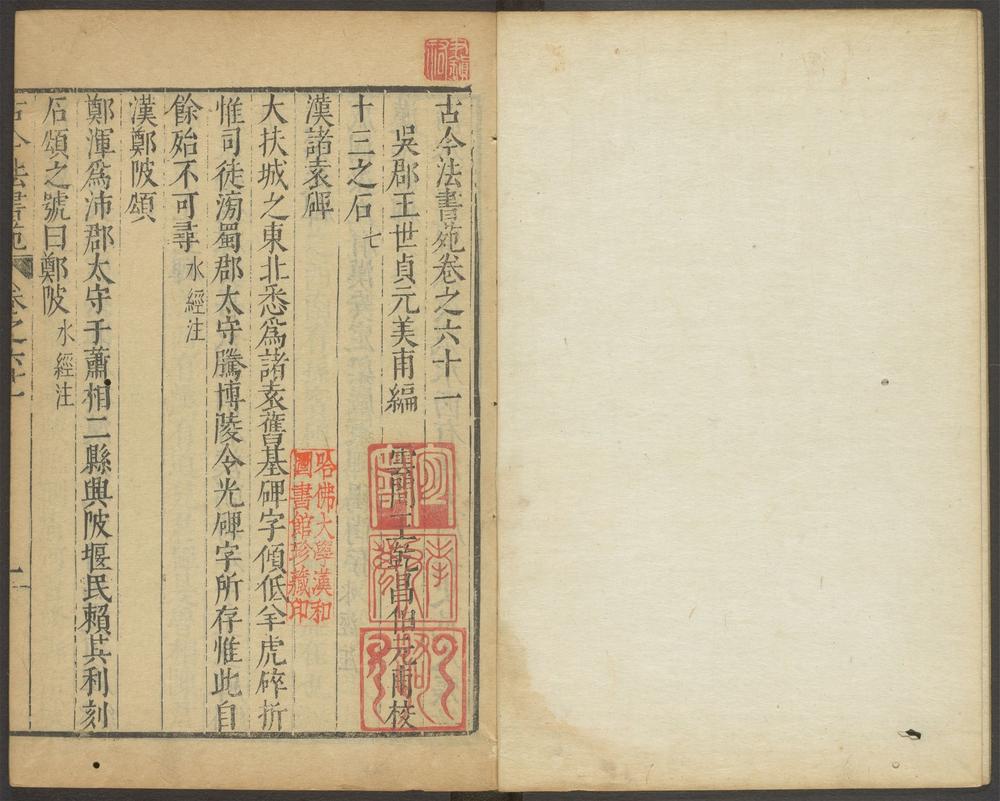 古今法書苑卷之六十一
吳郡王世貞元美甫編
雲間王乾昌伯元甫校
十三之石七
漢諸袁碑
大扶城之東北悉爲諸袁舊基碑字傾低羊虎碎折
惟司徒滂蜀郡太守騰博陵令光碑字所存惟此自
餘殆不可尋水經注
漢鄭陂頌
鄭渾爲沛郡太守于蕭相二縣興陂堰民賴其利刻
石頌之號曰鄭陂水經注
古今法書苑 卷之六十一 一
哈佛大學漢和
圖書館珍藏印